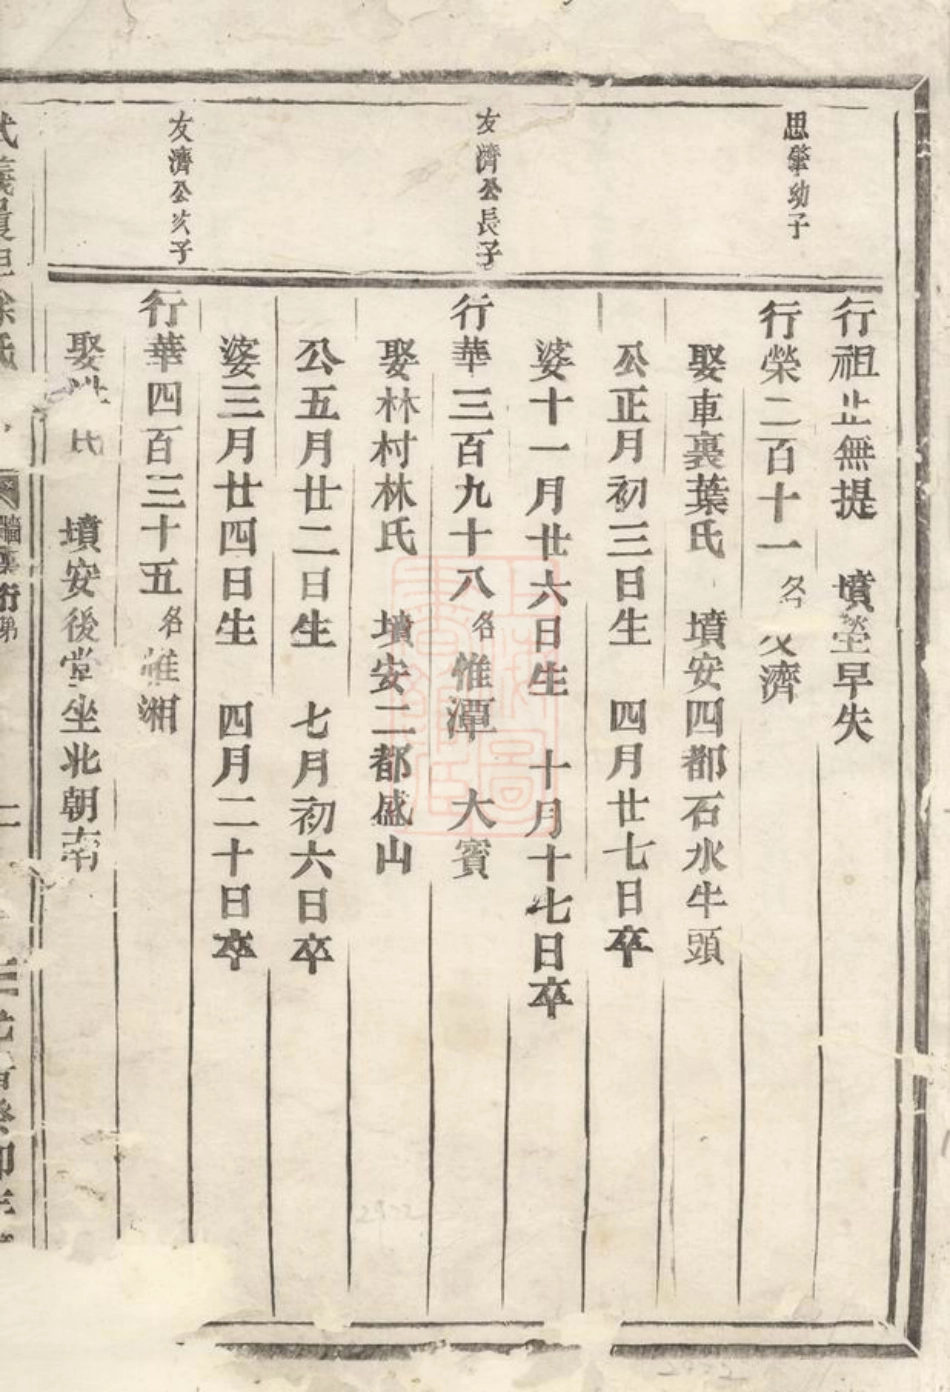 思肇幼子
友濟公長子
友濟公次子
行祖止無提 墳塋早失
行榮二百十一 名友濟
娶車裏葉氏 墳安四都石水牛頭
公正月初三日生 四月廿七日卒
婆十一月廿六日生 十月十七日卒
行華三百九十八 名惟潭 大賓
娶林村林氏 墳安二都盛山
公五月廿二日生 七月初六日卒
婆三月廿四日生 四月二十日卒
行華四百三十五 名惟湘
娶 氏 墳安後堂坐北朝南
武義 徐氏 行第 二